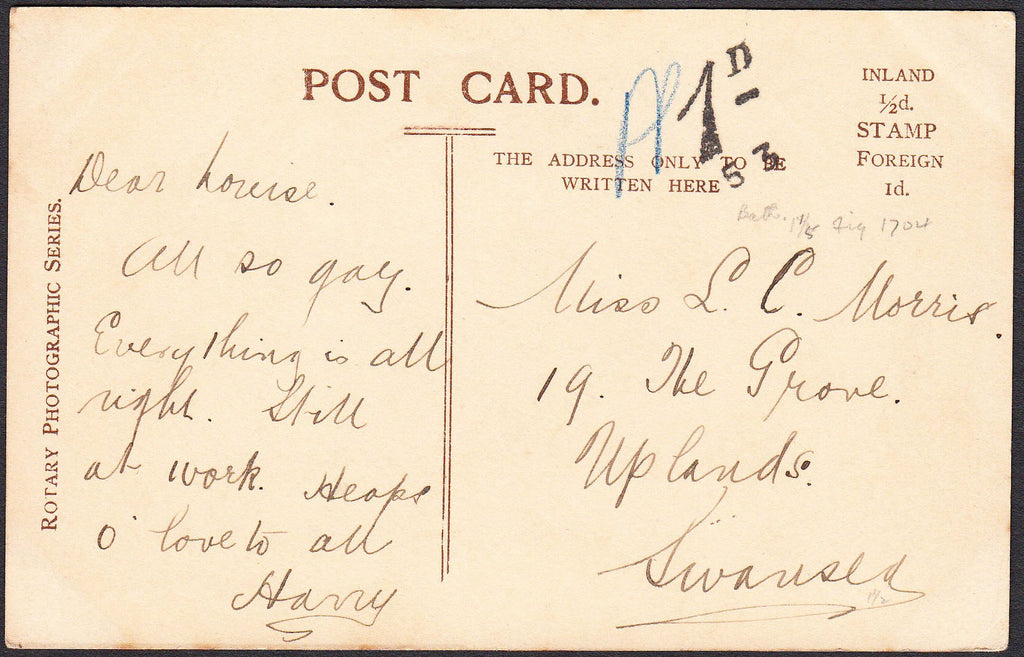 POST CARD.
INLAND
½d.
STAMP
FOREIGN
1d.
1D
53
THE ADDRESS ONLY TO BE
WRITTEN HERE
ROTARY PHOTOGRAPHIC SERIES.
Dear Louise.
All so gay.
Everything is all
right. Still
at work. Heaps
O' love to all
Harry
Bath. Fig 1704
Miss L. C. Morris.
19. The Grove.
Uplands.
Swansea